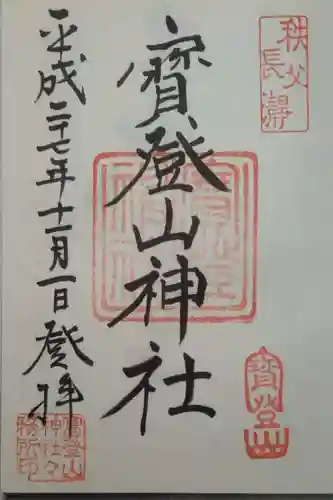 秩父
長瀞
寳登山神社
寳登
平成二十七年十一月一日登拝
寳登山
神社々
務所印